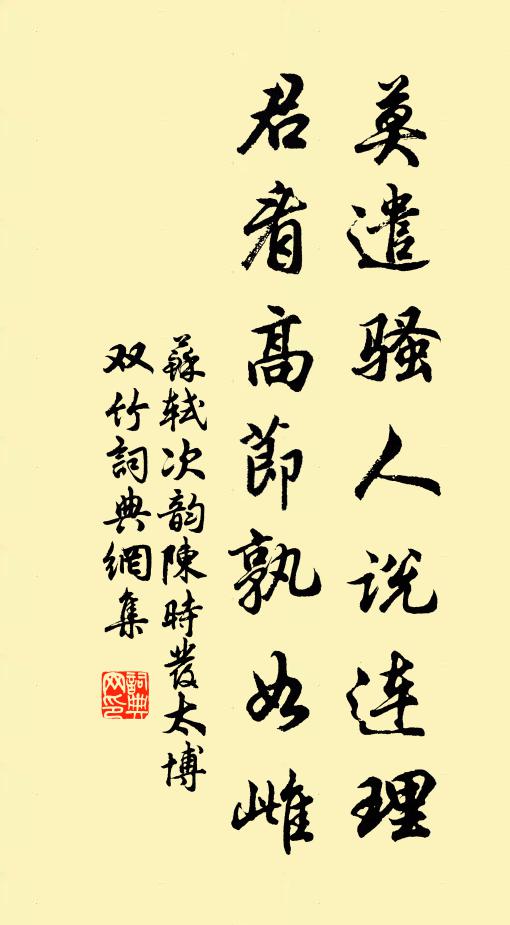 莫遣骚人说连理
君看高節孰如雌
蘇軾次韵陳時發太博
双竹詞典網集
詞典网印